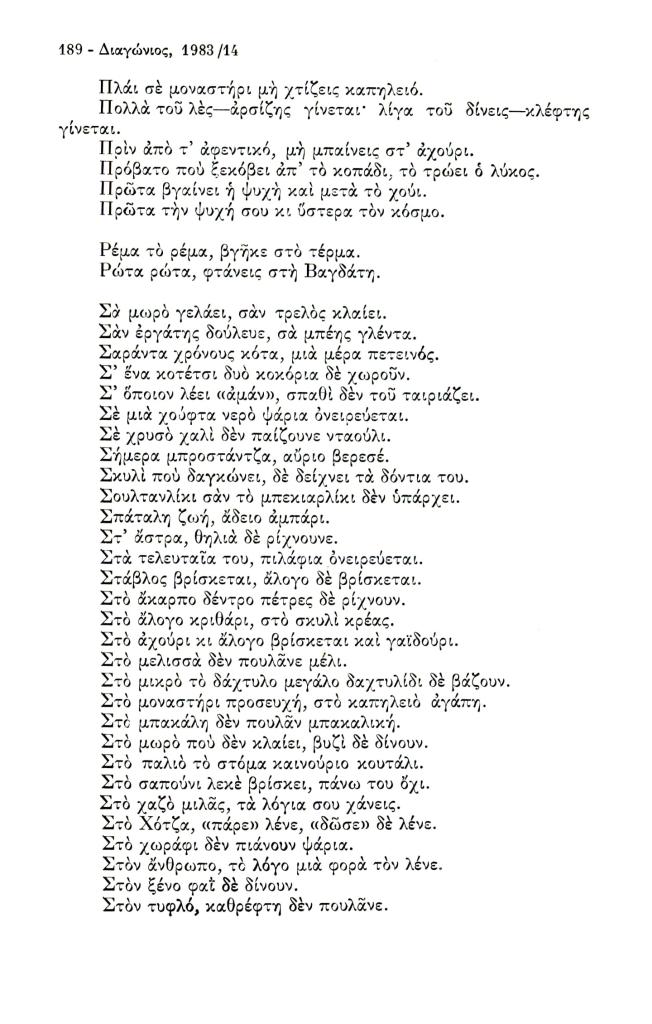 189 - Διαγώνιος, 1983/14
Πλάι σὲ μοναστήρι μὴ χτίζεις καπηλειό.
Πολλὰ τοῦ λὲς—ἀρσίζης γίνεται· λίγα τοῦ δίνεις—κλέφτης
γίνεται.
Πρὶν ἀπὸ τ' ἀφεντικό, μὴ μπαίνεις στ' ἀχούρι.
Πρόβατο ποὺ ξεκόβει ἀπ' τὸ κοπάδι, τὸ τρώει ὁ λύκος.
Πρῶτα βγαίνει ἡ ψυχὴ καὶ μετὰ τὸ χούι.
Πρῶτα τὴν ψυχή σου κι ὕστερα τὸν κόσμο.
Ρέμα τὸ ρέμα, βγῆκε στὸ τέρμα.
Ρώτα ρώτα, φτάνεις στὴ Βαγδάτη.
Σὰ μωρὸ γελάει, σὰν τρελὸς κλαίει.
Σὰν ἐργάτης δούλευε, σὰ μπέης γλέντα.
Σαράντα χρόνους κότα, μιὰ μέρα πετεινός.
Σ' ἕνα κοτέτσι δυὸ κοκόρια δὲ χωροῦν.
Σ' ὅποιον λέει «ἀμάν», σπαθὶ δὲν τοῦ ταιριάζει.
Σὲ μιὰ χούφτα νερὸ ψάρια ὀνειρεύεται.
Σὲ χρυσὸ χαλὶ δὲν παίζουνε νταούλι.
Σήμερα μπροστάντζα, αὔριο βερεσέ.
Σκυλὶ ποὺ δαγκώνει, δὲ δείχνει τὰ δόντια του.
Σουλτανλίκι σὰν τὸ μπεκιαρλίκι δὲν ὑπάρχει.
Σπάταλη ζωή, ἄδειο ἀμπάρι.
Στ' ἄστρα, θηλιὰ δὲ ρίχνουνε.
Στὰ τελευταῖα του, πιλάφια ὀνειρεύεται.
Στάβλος βρίσκεται, ἄλογο δὲ βρίσκεται.
Στὸ ἄκαρπο δέντρο πέτρες δὲ ρίχνουν.
Στὸ ἄλογο κριθάρι, στὸ σκυλὶ κρέας.
Στὸ ἀχούρι κι ἄλογο βρίσκεται καὶ γαϊδούρι.
Στὸ μελισσὰ δὲν πουλᾶνε μέλι.
Στὸ μικρὸ τὸ δάχτυλο μεγάλο δαχτυλίδι δὲ βάζουν.
Στὸ μοναστήρι προσευχή, στὸ καπηλειὸ ἀγάπη.
Στὸ μπακάλη δὲν πουλᾶν μπακαλική.
Στὸ μωρὸ ποὺ δὲν κλαίει, βυζὶ δὲ δίνουν.
Στὸ παλιὸ τὸ στόμα καινούριο κουτάλι.
Στὸ σαπούνι λεκὲ βρίσκει, πάνω του ὄχι.
Στὸ χαζὸ μιλᾶς, τὰ λόγια σου χάνεις.
Στὸ Χότζα, «πάρε» λένε, «δῶσε» δὲ λένε.
Στὸ χωράφι δὲν πιάνουν ψάρια.
Στὸν ἄνθρωπο, τὸ λόγο μιὰ φορὰ τὸν λένε.
Στὸν ξένο φαῒ δὲ δίνουν.
Στὸν τυφλό, καθρέφτη δὲν πουλᾶνε.